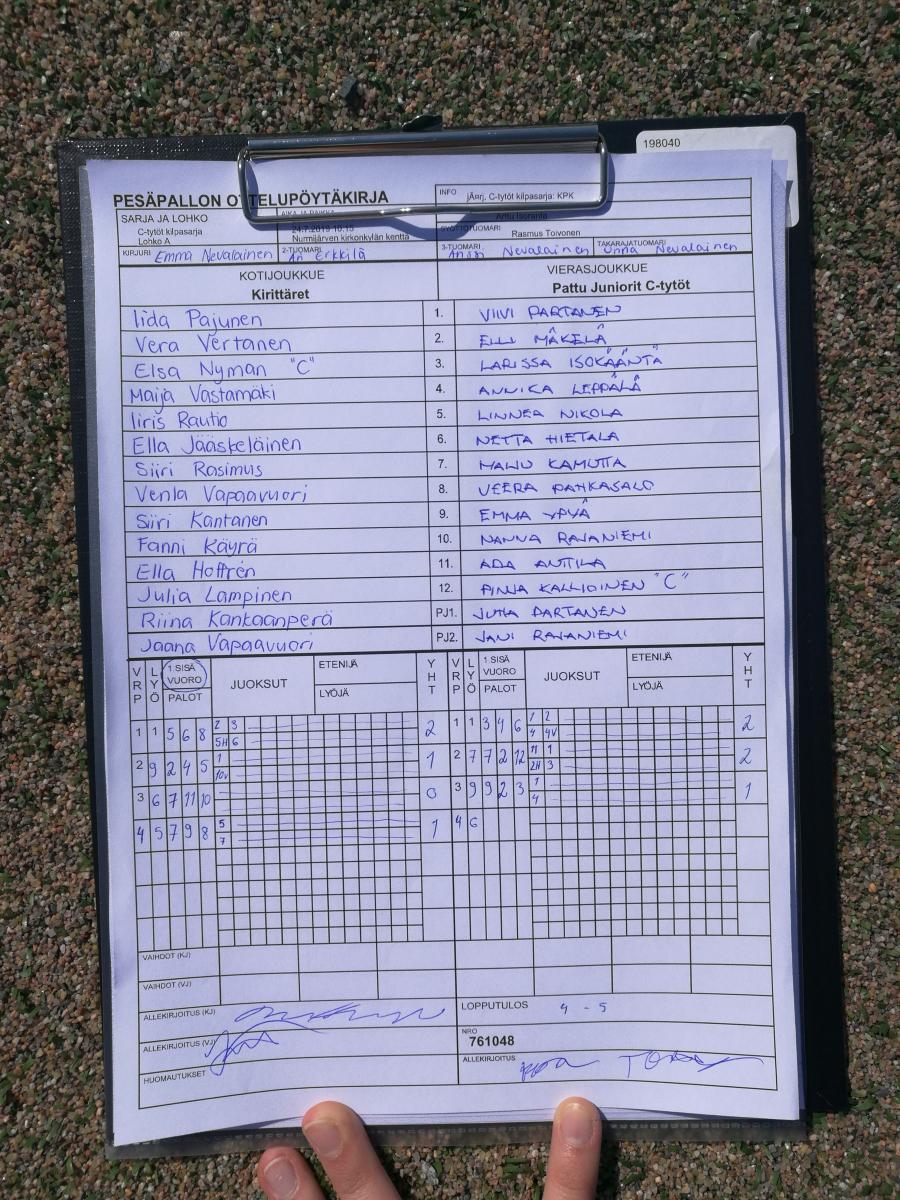 198040
PESÄPALLON OTTELUPÖYTÄKIRJA
INFO jÄrrj. C-tytöt kilpasarja: KPK
SARJA JA LOHKO
C-tytöt kilpasarja
Lohko A
AIKA JA PAIKKA
24.7.2019 10.15
Nurmijärven kirkonkylän kenttä
Arttu Isoranta
SYÖTTÖTUOMARI Rasmus Toivonen
KIRJURI Emma Nevalainen 2-TUOMARI Ari Erkkilä 3-TUOMARI Anssi Nevalainen TAKARAJATUOMARI Unna Nevalainen
KOTIJOUKKUE VIERASJOUKKUE
Kirittäret Pattu Juniorit C-tytöt
Iida Pajunen 1. VIIVI PARTANEN
Vera Vertanen 2. ELLI MÄKELÄ
Elsa Nyman "C" 3. LARISSA ISOKÄÄNTÄ
Maija Vastamäki 4. ANNIKA LEPPÄLÄ
Iiris Rautio 5. LINNEA NIKOLA
Ella Jääskeläinen 6. NETTA HIETALA
Siiri Rasimus 7. KAMUTTA
Venla Vapaavuori 8. VEERA PAHKASALO
Siiri Kantanen 9. EMMA YPYÄ
Fanni Käyrä 10. NANNA RAJANIEMI
Ella Hoffrén 11. ADA ANTTILA
Julia Lampinen 12. PINJA KALLIOINEN "C"
Riina Kankaanperä PJ1. JUHA PARTANEN
Jaana Vapaavuori PJ2. JANI RAJANIEMI
VRP LYÖ 1.SISÄ VUORO PALOT JUOKSUT ETENIJÄ LYÖJÄ YHT VRP LYÖ 1.SISÄ VUORO PALOT JUOKSUT ETENIJÄ LYÖJÄ YHT
1 1 5 6 8 2 3 2 1 1 3 4 6 1 2 2
5H 6 4 4V
2 9 2 4 5 1 1 2 7 7 2 12 11 1 2
10V 2H 3
3 6 7 11 10 0 3 9 9 2 3 1 1
4
4 5 7 9 8 5 1 4 6
7
VAIHDOT (KJ)
VAIHDOT (VJ)
ALLEKIRJOITUS (KJ) LOPPUTULOS 4 - 5
ALLEKIRJOITUS (VJ) NRO
761048
HUOMAUTUKSET ALLEKIRJOITUS